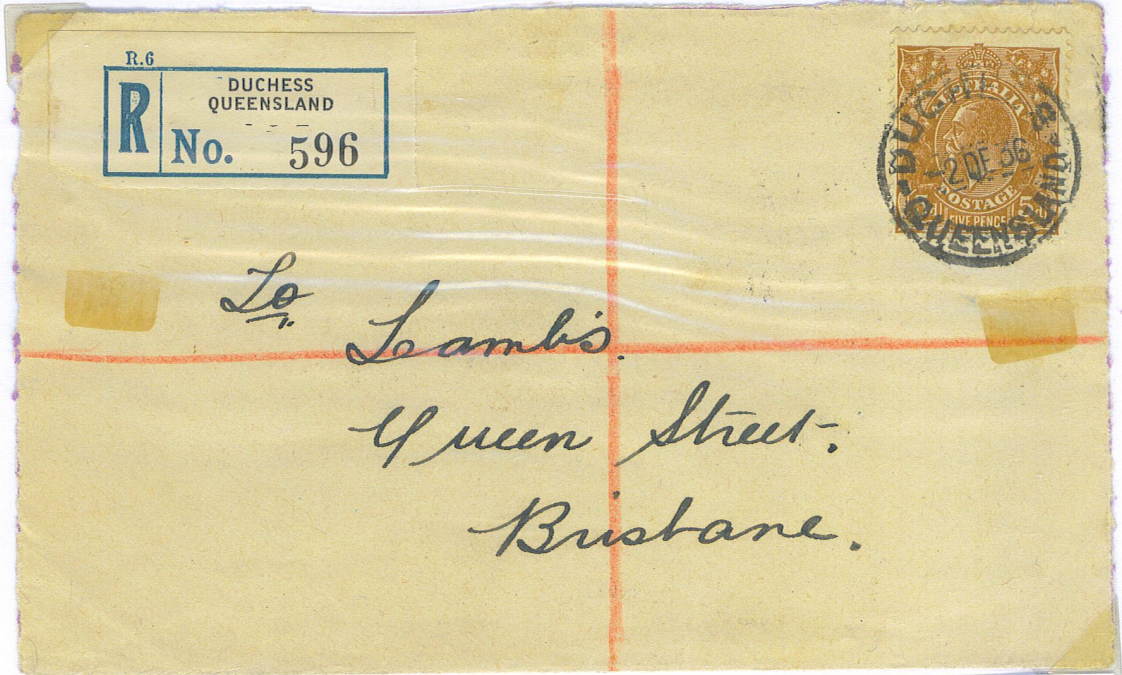 R.6
R
DUCHESS
QUEENSLAND
No. 596
AUSTRALIA
POSTAGE
FIVE PENCE
5
2 DE 36
QUEENSLAND
To
Lamb's.
Queen Street.
Brisbane.